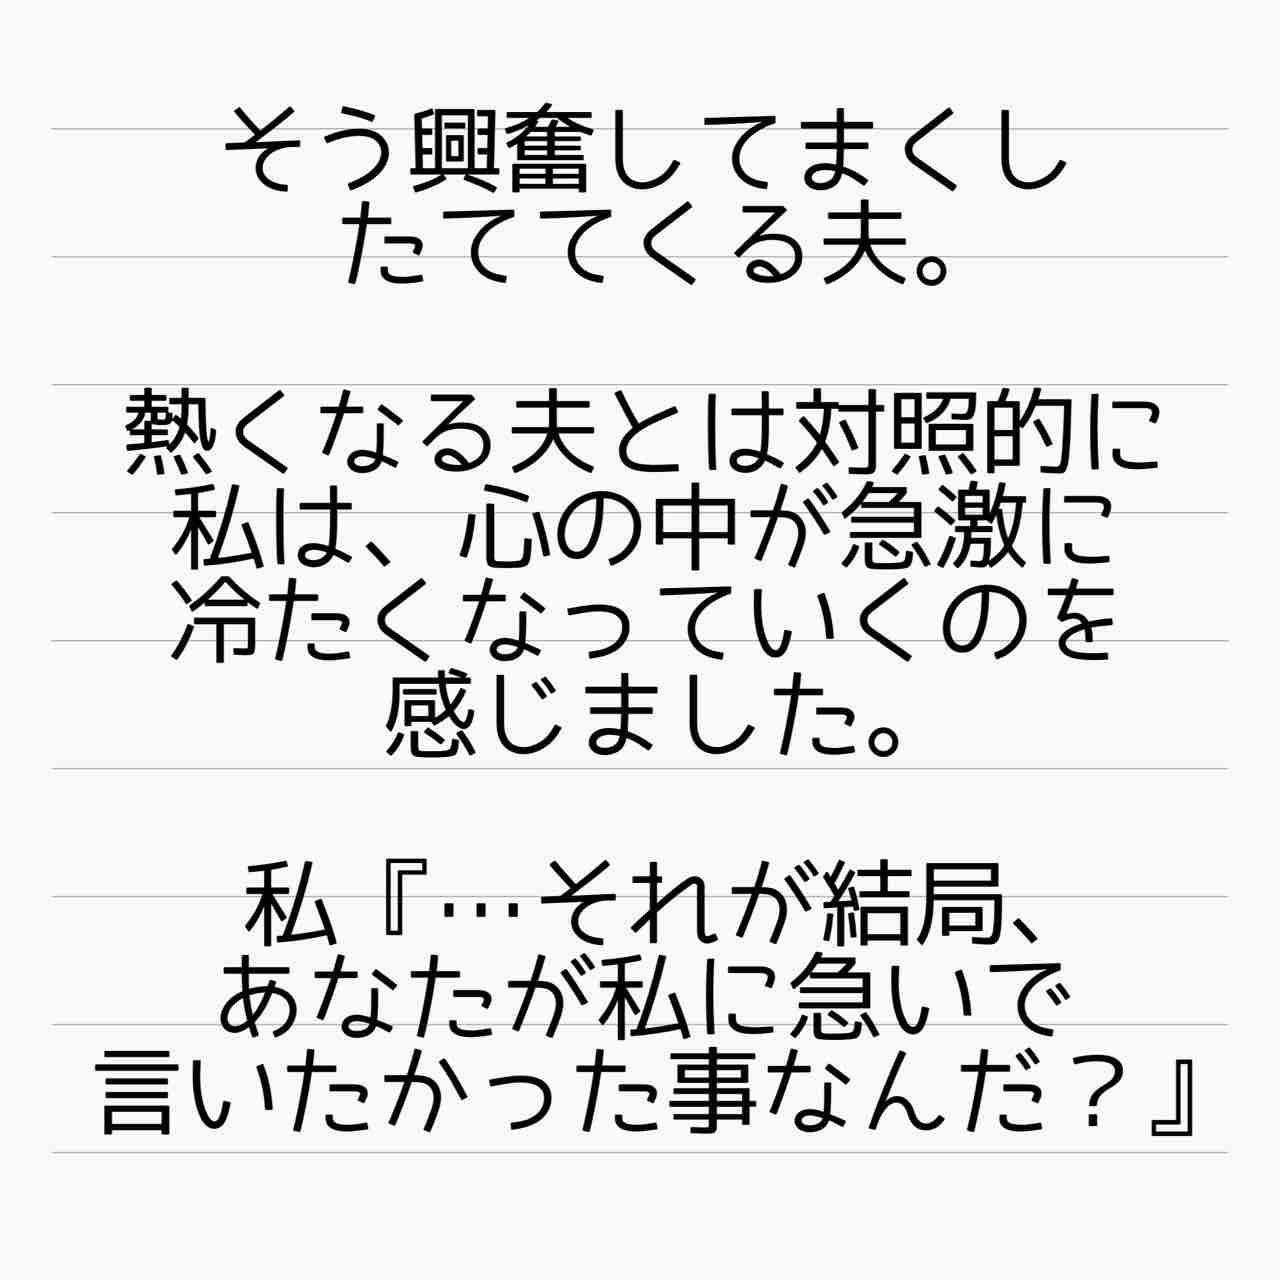 そう興奮してまくし
たててくる夫。
熱くなる夫とは対照的に
私は、心の中が急激に
冷たくなっていくのを
感じました。
私『…それが結局、
あなたが私に急いで
言いたかった事なんだ？』